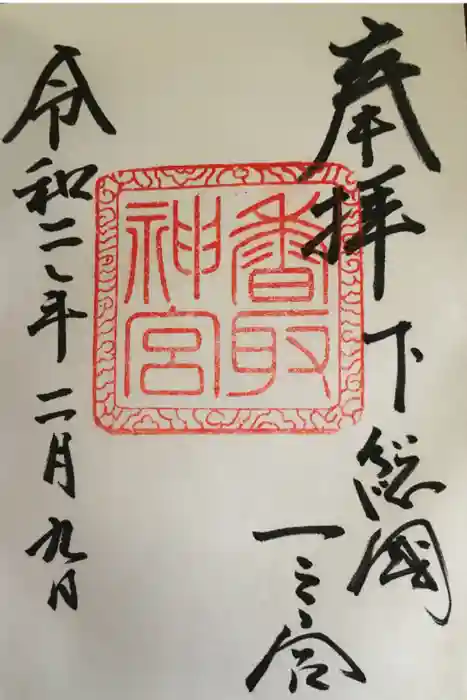 奉拝 下総國
一之宮
香取
神宮
令和二年 二月 九日